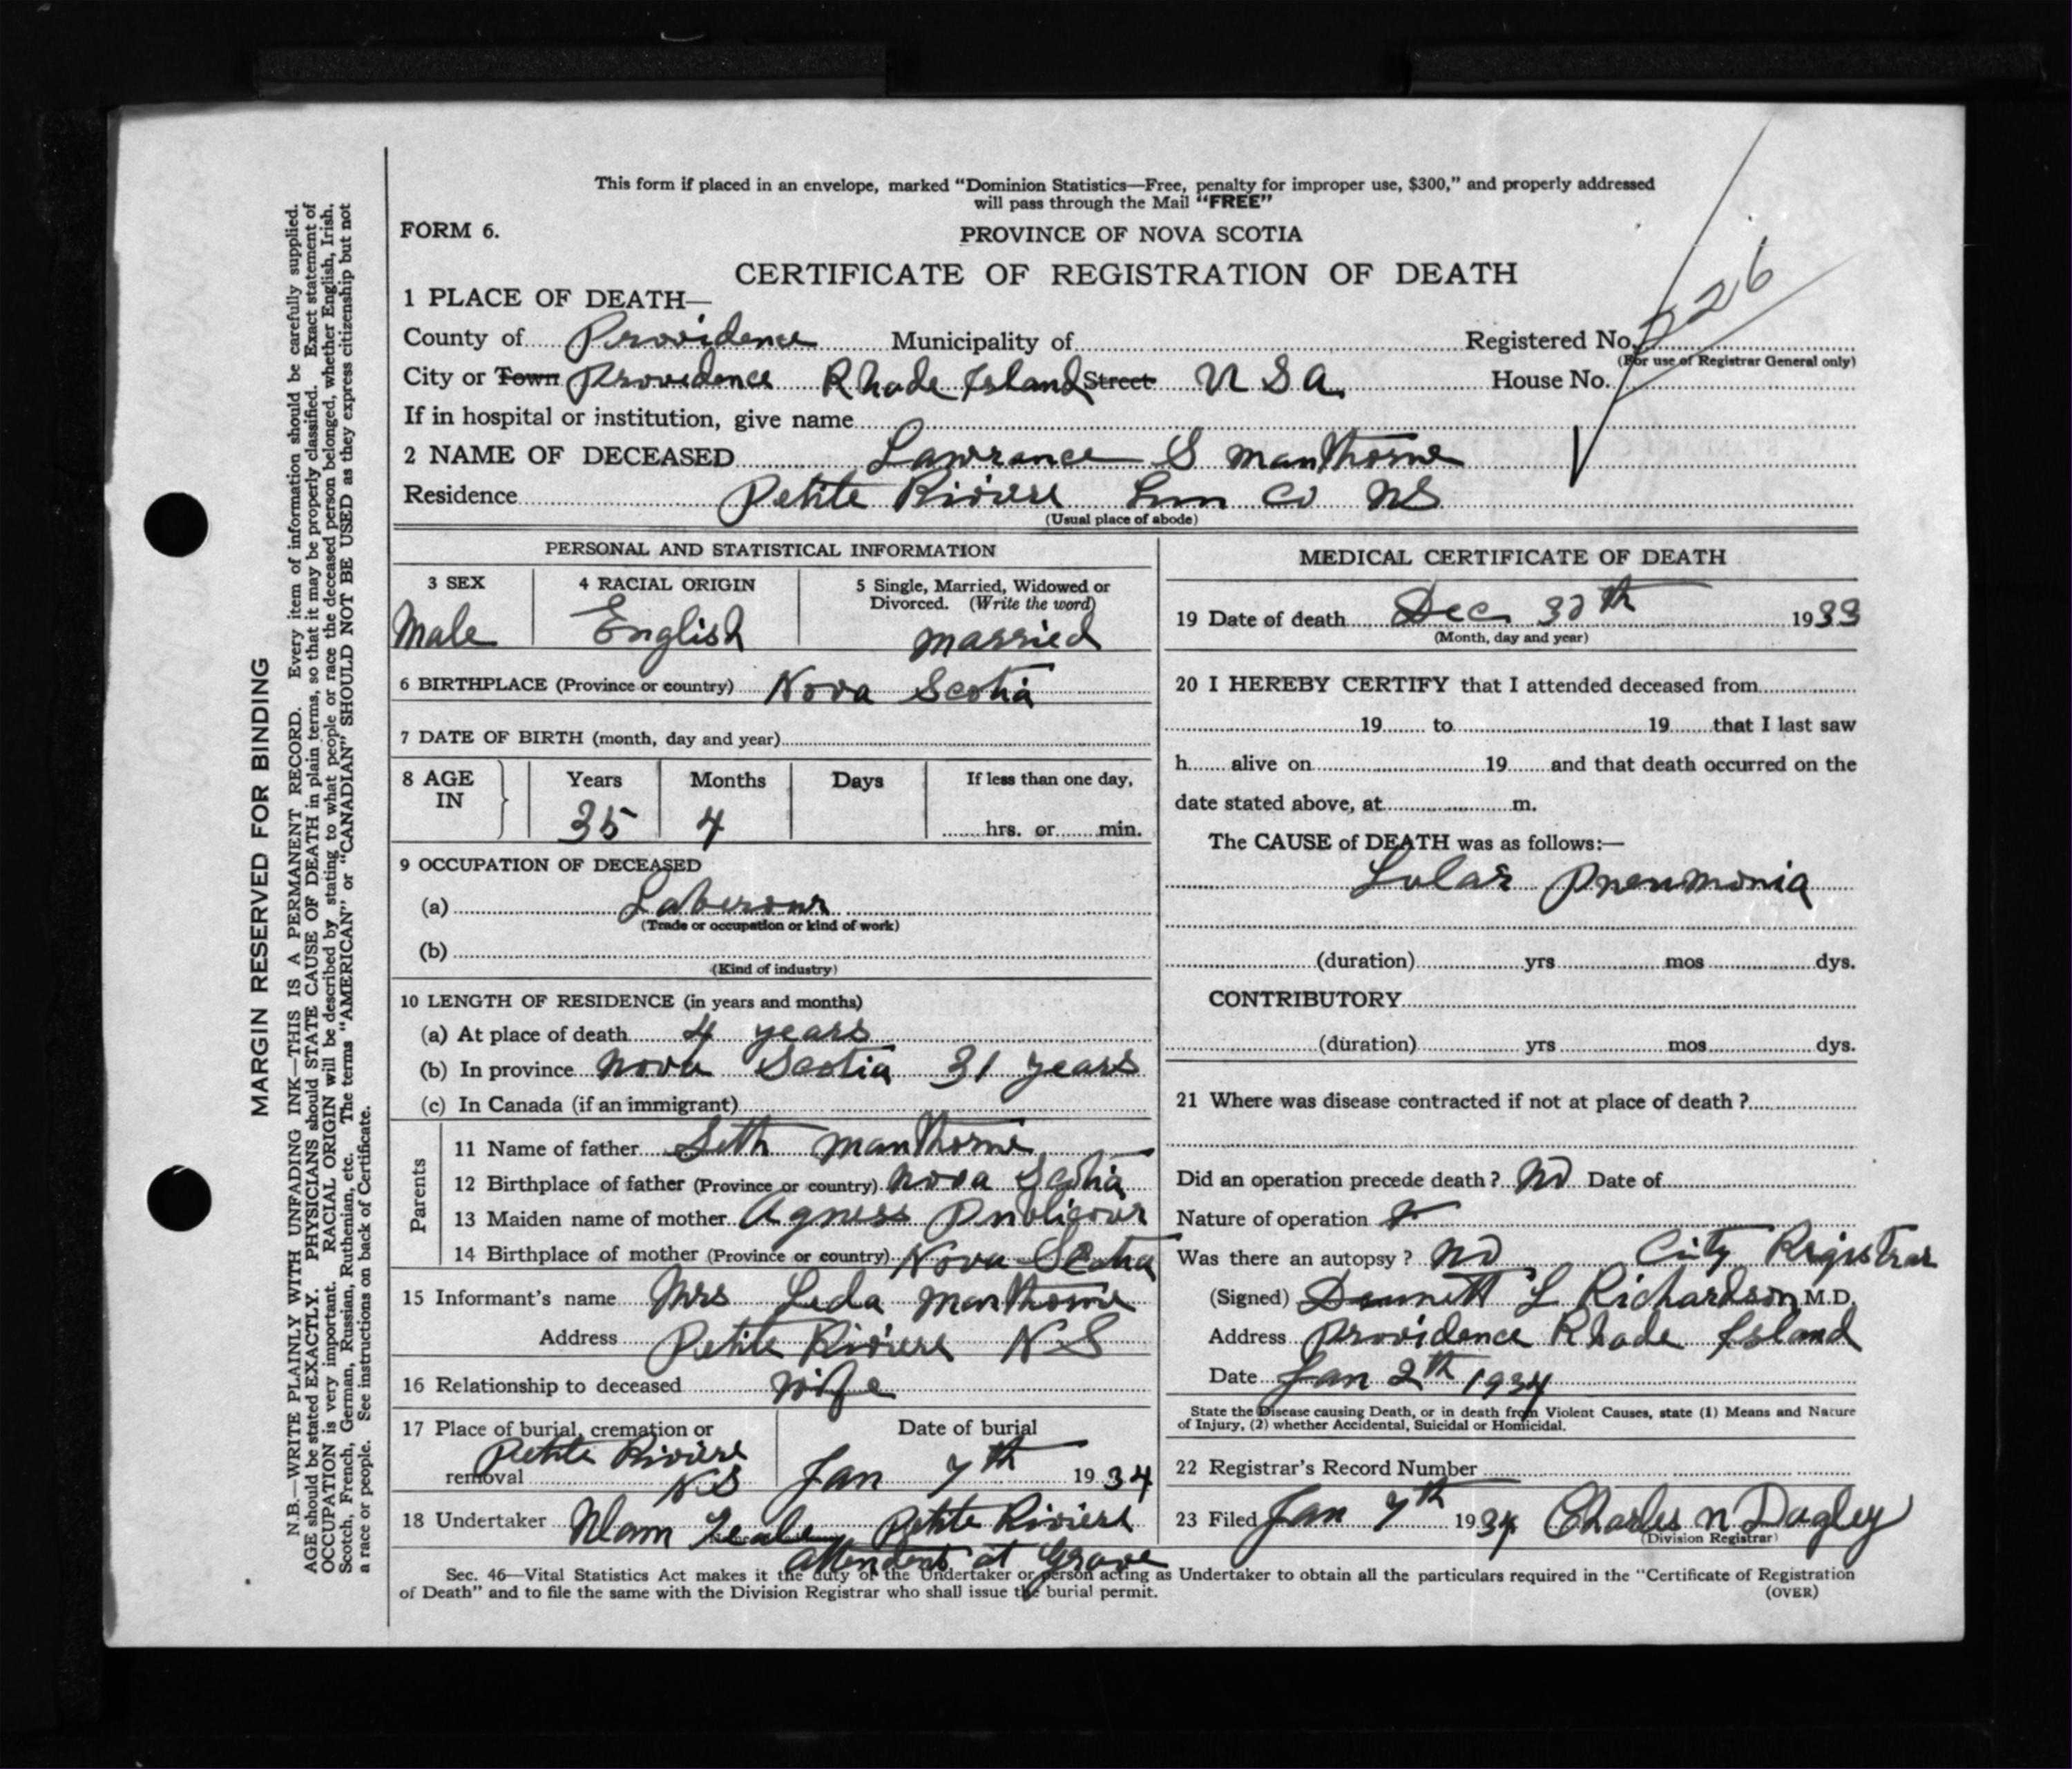 This form if placed in an envelope, marked “Dominion Statistics—Free, penalty for improper use, $300,” and properly addressed
will pass through the Mail “FREE”
FORM 6.
PROVINCE OF NOVA SCOTIA
CERTIFICATE OF REGISTRATION OF DEATH
226
1 PLACE OF DEATH—
County of Providence Municipality of Registered No.
(For use of Registrar General only)
City or Town Providence Rhode Island Street U S A. House No.
If in hospital or institution, give name
2 NAME OF DECEASED Lawrance S Manthorne
Residence Petite Riviere Lun Co NS
(Usual place of abode)
PERSONAL AND STATISTICAL INFORMATION
3 SEX 4 RACIAL ORIGIN 5 Single, Married, Widowed or
Divorced. (Write the word)
Male English Married
6 BIRTHPLACE (Province or country) Nova Scotia
7 DATE OF BIRTH (month, day and year)
8 AGE IN Years Months Days If less than one day,
35 4 hrs. or min.
9 OCCUPATION OF DECEASED
(a) Laberour
(Trade or occupation or kind of work)
(b)
(Kind of industry)
10 LENGTH OF RESIDENCE (in years and months)
(a) At place of death 4 years
(b) In province Nova Scotia 31 years
(c) In Canada (if an immigrant)
Parents
11 Name of father Seth Manthorne
12 Birthplace of father (Province or country) Nova Scotia
13 Maiden name of mother Agness Publicour
14 Birthplace of mother (Province or country) Nova Scotia
15 Informant's name Mrs Leda Manthorne
Address Petite Riviere N S
16 Relationship to deceased Wife
17 Place of burial, cremation or Date of burial
Petite Riviere
removal N S Jan 7th 1934
18 Undertaker Petite Riviere
attendent at Grave
MEDICAL CERTIFICATE OF DEATH
19 Date of death Dec 30th 1933
(Month, day and year)
20 I HEREBY CERTIFY that I attended deceased from
19 to 19 that I last saw
h alive on 19 and that death occurred on the
date stated above, at m.
The CAUSE of DEATH was as follows:—
Lolar Pneumonia
(duration) yrs mos dys.
CONTRIBUTORY
(duration) yrs mos dys.
21 Where was disease contracted if not at place of death ?
Did an operation precede death ? No Date of
Nature of operation
Was there an autopsy ? No City Registrar
(Signed) L Richardson M.D.
Address Providence Rhode Island
Date Jan 2th 1934
State the Disease causing Death, or in death from Violent Causes, state (1) Means and Nature
of Injury, (2) whether Accidental, Suicidal or Homicidal.
22 Registrar's Record Number
23 Filed Jan 7th 1934 Charles N Dagley
(Division Registrar)
Sec. 46—Vital Statistics Act makes it the duty of the Undertaker or person acting as Undertaker to obtain all the particulars required in the “Certificate of Registration
of Death” and to file the same with the Division Registrar who shall issue the burial permit.
(OVER)
MARGIN RESERVED FOR BINDING
N.B.—WRITE PLAINLY WITH UNFADING INK—THIS IS A PERMANENT RECORD. Every item of information should be carefully supplied.
AGE should be stated EXACTLY. PHYSICIANS should STATE CAUSE OF DEATH in plain terms, so that it may be properly classified. Exact statement of
OCCUPATION is very important. RACIAL ORIGIN will be described by stating to what people or race the deceased person belonged, whether English, Irish,
Scotch, French, German, Russian, Ruthenian, etc. The terms “AMERICAN” or “CANADIAN” SHOULD NOT BE USED as they express citizenship but not
a race or people. See instructions on back of Certificate.